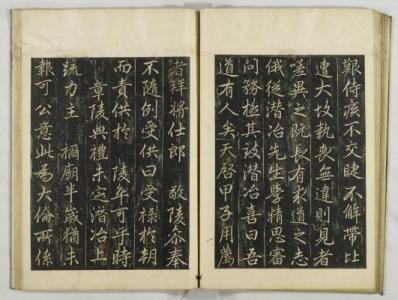 艱侍疾不交睫不解帶比
遭大故執喪無違則見者
嗟異之既長有求道之志
俄從潛冶先生學精思審
問務極其潛冶喜曰吾
道有人矣天啓甲子用薦
者拜將仕郎 敬陵參奉
不隨例受供曰受祿於朝
而責供於 陵卒可乎時
章陵典禮未定潛冶上
疏力主 禰廟半歲猶未
報可公意此為大倫所係